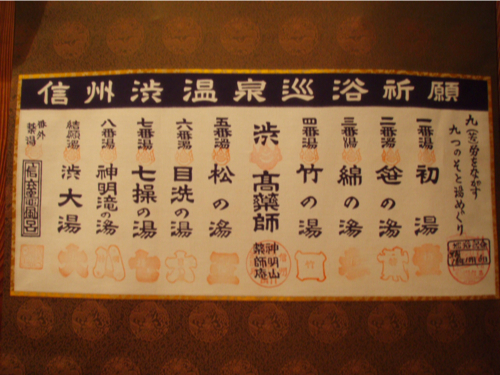 信州渋温泉巡浴祈願
九(苦)労をながす
九つのそと湯めぐり
一番湯
初の湯
二番湯
笹の湯
三番湯
綿の湯
四番湯
竹の湯
渋
高薬師
神明山
薬師庵
五番湯
松の湯
六番湯
目洗の湯
七番湯
七操の湯
八番湯
神明滝の湯
結願湯
渋大湯
番外
薬湯
信玄竈風呂